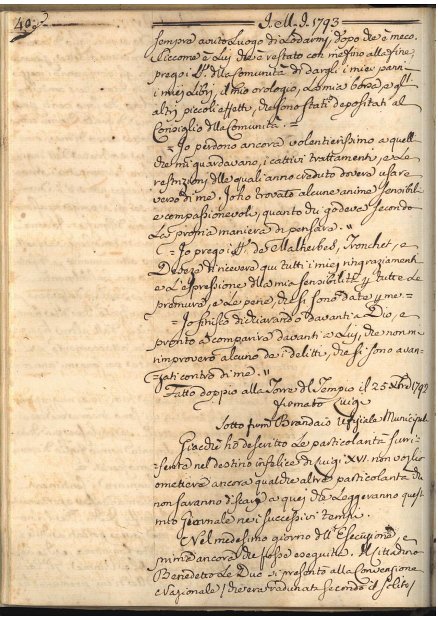 40.
J. M. J. 1793
sempre avuto luogo di lodarmi, dopo che è meco.
Siccome è Lui che è restato con me fino alla fine,
prego i Sig.ri della Comunità di dargli i miei panni
i miei Libri, il mio orologio, la mia borsa, e gl'
altri piccoli effetti, che sono stati depositati al
Consiglio della Comunità. =
= Io perdono ancora volentierissimo a quelli
che mi guardavano, i cattivi trattamenti, e le
restrizioni delle quali anno creduto dovere usare
verso di me. Io ho trovate alcune anime sensibili
e compassionevoli, quanto di godeva secondo
La propria maniera di pensare. "
= Io prego i Sig.ri de Malherbes, Tronchet, e
Deseze di ricevere qui tutti i miei ringraziamenti
e L'espressione della mia sensibilità p. tutte Le
premure, e Le pene, che si sono date p. me =
= Io finisco dichiarando davanti a Dio, e
pronto a comparire davanti a Lui, che non mi
rimprovero alcuno de' delitti, che si sono avan-
zati contro di me. "
Fatto doppio alla Torre del Tempio il 25 Xbre 1792
firmato Luigi
Sotto firm. Brandaio Uffiziale Municipale
Giacchè ho descritto Le particolarità surri-
ferite nel destino infelice di Luigi XVI. non voglio
omettere ancora qualche altra particolarità, che
non saranno discare a quei che Leggeranno questo
mio Giornale nei successivi tempi.
Nel medesimo giorno dell'Esecuzione, e
prima ancora che fosse eseguita. Il cittadino
Benedetto Le Duc si presentò alla Convenzione
Nazionale (che era radunata secondo il solito)